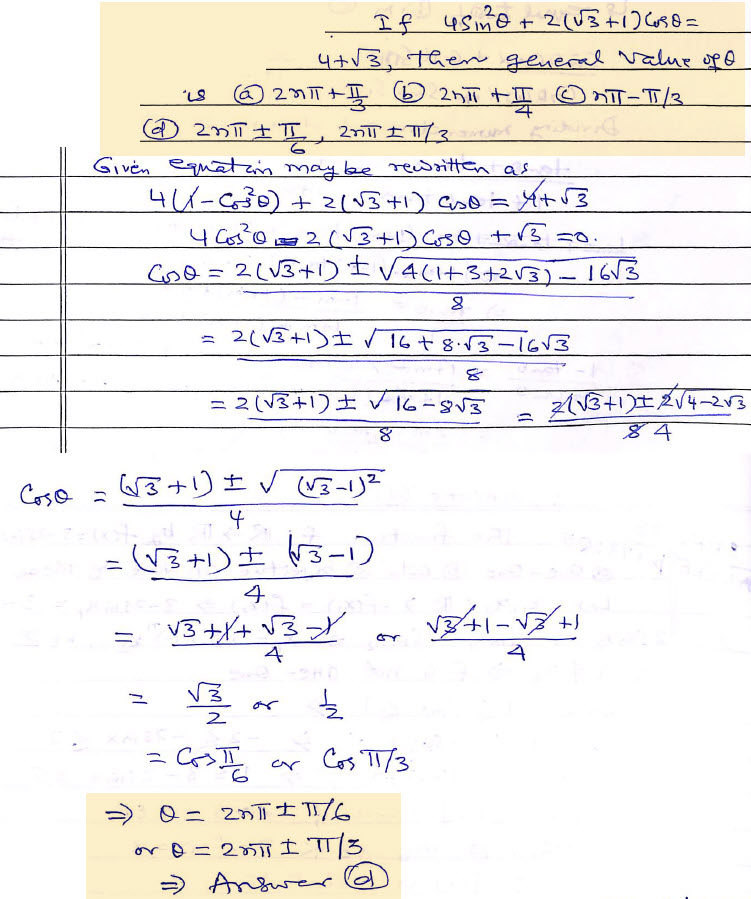 If 4Sin²θ + 2(√3+1)Cosθ =
4+√3, then general value of θ
is (a) 2nπ + π/3 (b) 2nπ + π/4 (c) nπ - π/3
(d) 2nπ ± π/6, 2nπ ± π/3
Given equation may be rewritten as
4(1-Cos²θ) + 2(√3+1) Cosθ = 4+√3
4Cos²θ - 2(√3+1)Cosθ + √3 = 0
Cosθ = (2(√3+1) ± √(4(1+3+2√3) - 16√3))/8
= (2(√3+1) ± √(16+8·√3-16√3))/8
= (2(√3+1) ± √(16-8√3))/8 = (2(√3+1) ± 2√(4-2√3))/8 4
Cosθ = ((√3+1) ± √((√3-1)²))/4
= ((√3+1) ± (√3-1))/4
= (√3+1+√3-1)/4 or (√3+1-√3+1)/4
= √3/2 or 1/2
= Cos π/6 or Cos π/3
⇒ θ = 2nπ ± π/6
or θ = 2nπ ± π/3
⇒ Answer (d)